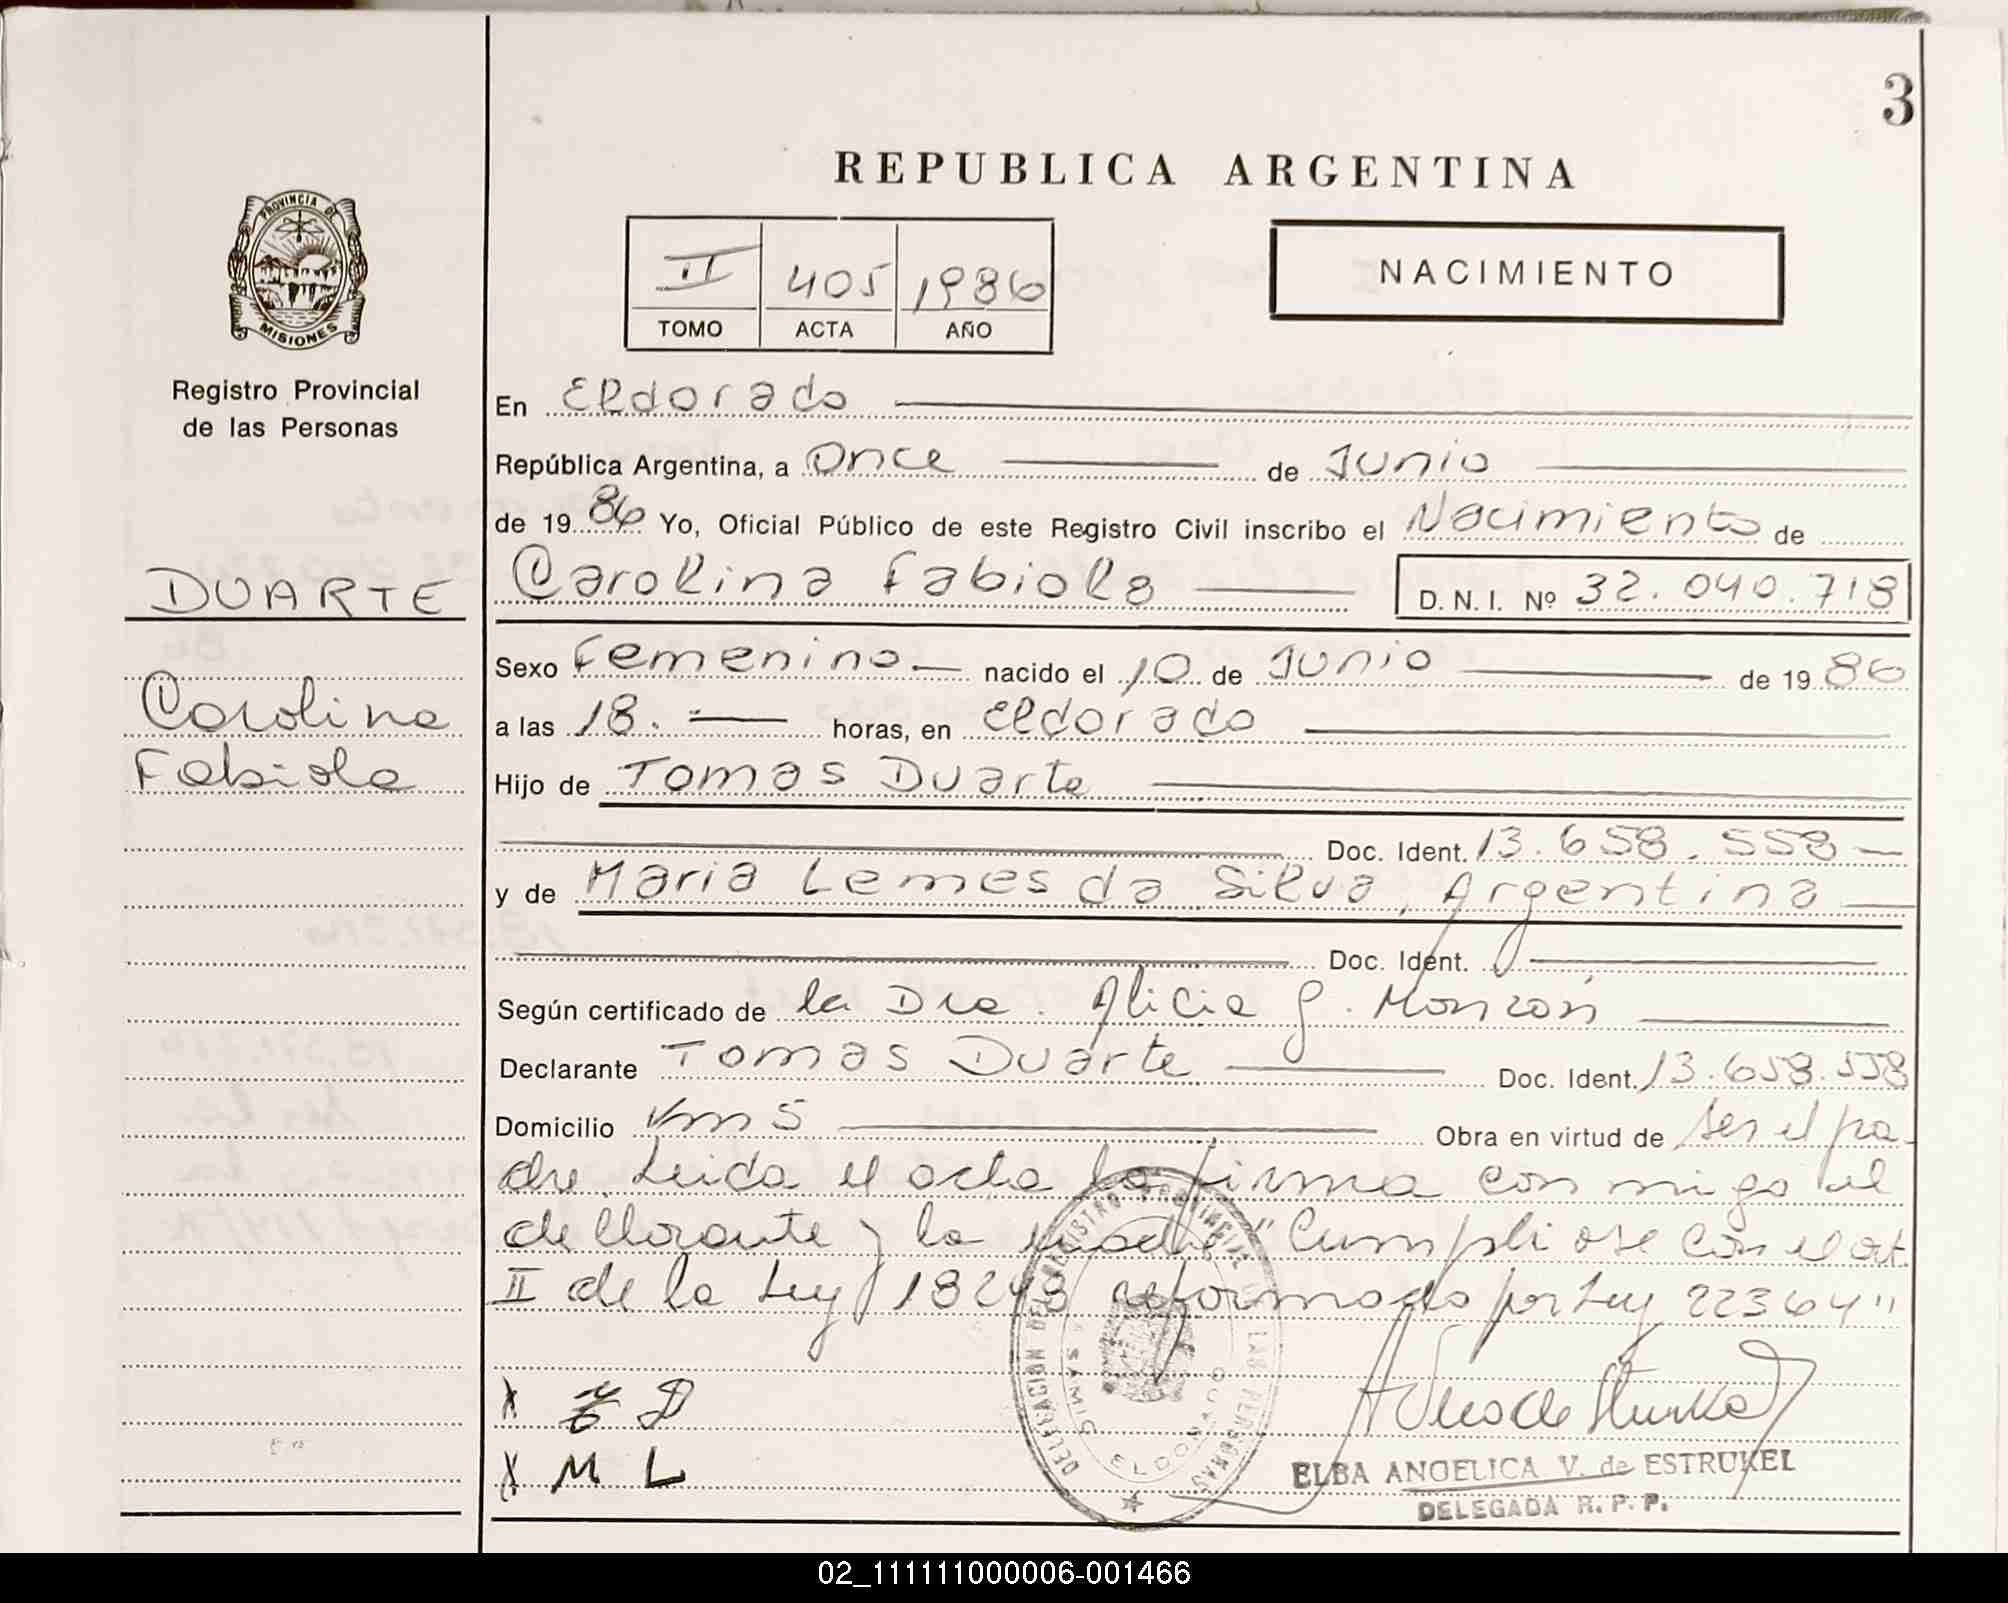 3
REPUBLICA ARGENTINA
PROVINCIA DE
MISIONES
Registro Provincial
de las Personas
II 405 1986
TOMO ACTA AÑO
NACIMIENTO
En Eldorado
República Argentina, a Once de Junio
de 1986 Yo, Oficial Público de este Registro Civil inscribo el Nacimiento de
DUARTE
Carolina Fabiola D.N.I. Nº 32.040.718
Sexo Femenino nacido el 10 de Junio de 1986
Carolina
Fabiola
a las 18. horas, en Eldorado
Hijo de Tomas Duarte
Doc. Ident. 13.658.558
y de Maria Lemes da Silva, Argentina
Doc. Ident.
Según certificado de la Dra. Alicia G. Monzón
Declarante Tomas Duarte Doc. Ident. 13.658.558
Domicilio Km 5 Obra en virtud de ser el pa-
dre. Leida el acta la firma con migo el
declarante y la madre "Cumpliose con el art.
II de la Ley 18248 reformado por Ley 22364"
X T D
X M L
DELEGACION DEL REGISTRO PROVINCIAL DE LAS PERSONAS
ELDORADO
MISIONES
ELBA ANGELICA V. de ESTRUKEL
DELEGADA R. P. P.
02_111111000006-001466